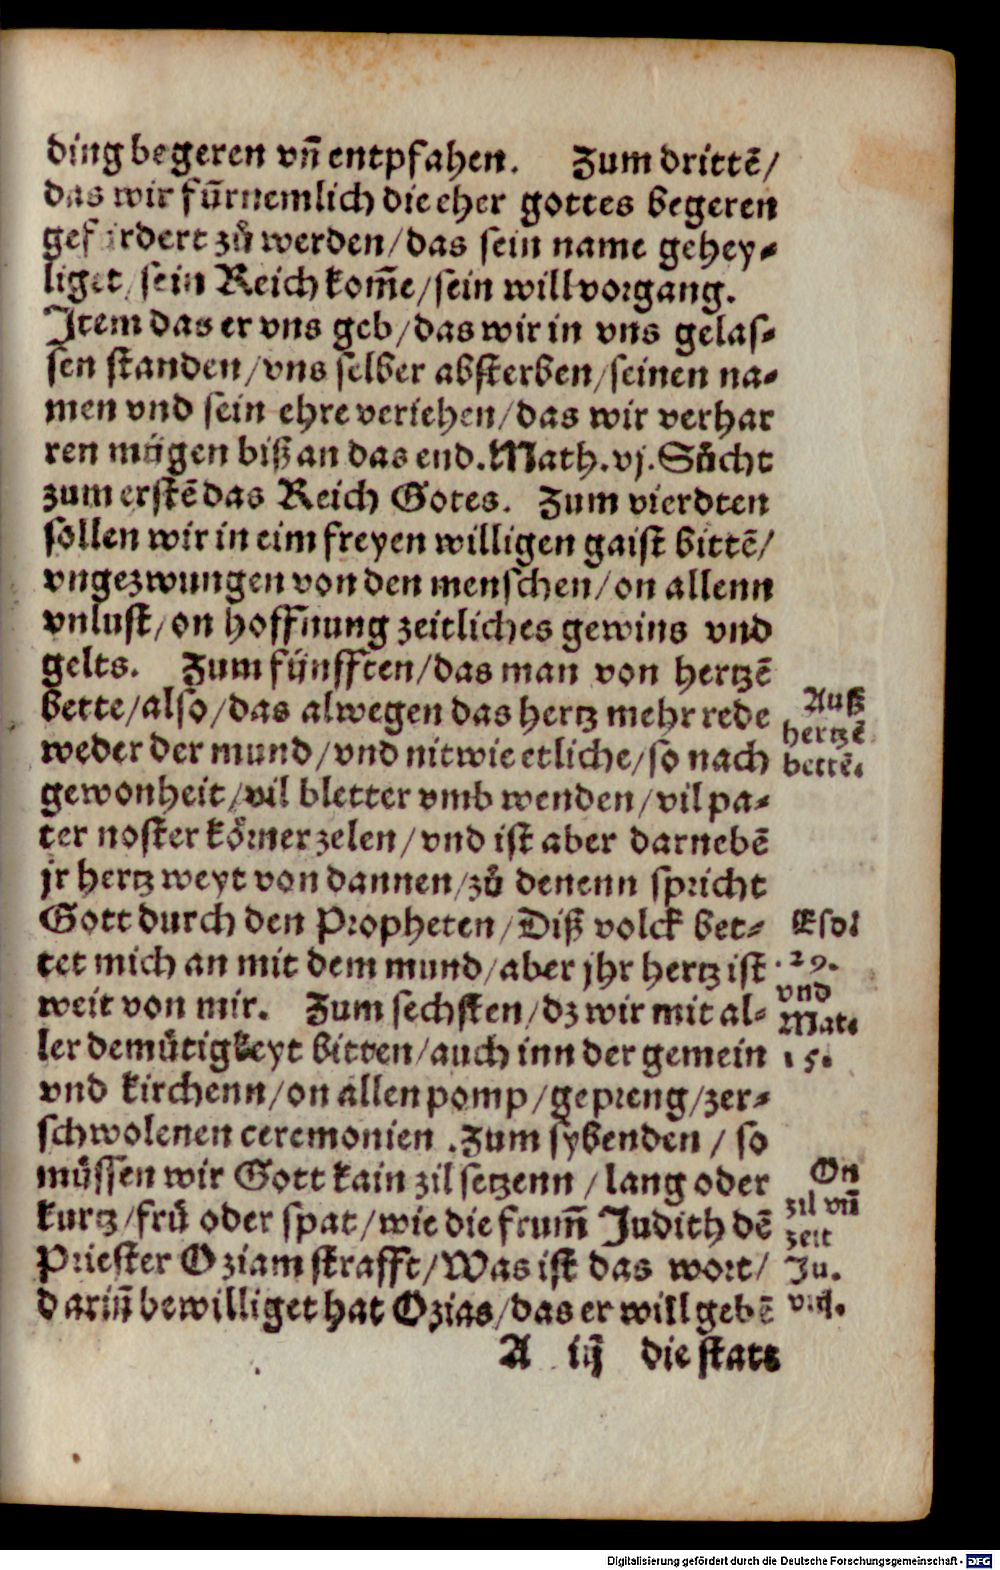 ding begeren vñ entpfahen. Zum drittẽ/
das wir fürnemlich die eher gottes begeren
gefürdert zů werden/das sein name gehey-
liget/sein Reich kom̃e/sein will vorgang.
Item das er vns geb/das wir in vns gelas-
sen standen/vns selber absterben/seinen na-
men vnd sein ehre veriehen/das wir verhar
ren mügen biß an das end. Math.vj. Sůcht
zum erstẽ das Reich Gotes. Zum vierdten
sollen wir in eim freyen willigen gaist bittẽ/
vngezwungen von den menschen/on allenn
vnlust/on hoffnung zeitliches gewins vnd
gelts. Zum fünfften/das man von hertzẽ
bette/also/das alwegen das hertz mehr rede
weder der mund/vnd nit wie etliche/so nach
gewonheit/vil bletter vmb wenden/vil pa-
ter noster körner zelen/vnd ist aber darnebẽ
jr hertz weyt von dannen/zů denenn spricht
Gott durch den Propheten/Diß volck bet-
tet mich an mit dem mund/aber jhr hertz ist
weit von mir. Zum sechsten/dz wir mit al-
ler demůtigkeyt bitten/auch inn der gemein
vnd kirchenn/on allen pomp/gepreng/zer-
schwolenen ceremonien. Zum sybenden/so
můssen wir Gott kain zil setzenn/lang oder
kurtz/frů oder spat/wie die frum̃ Judith dẽ
Priester Oziam strafft/Was ist das wort/
darin̄ bewilliget hat Ozias/das er will gebẽ
A iij die statt
Auß
hertzẽ
bettẽ.
Esai
29.
vnd
Mat.
15.
On
zil vñ
zeit
Ju.
viij.
Digitalisierung gefördert durch die Deutsche Forschungsgemeinschaft - DFG